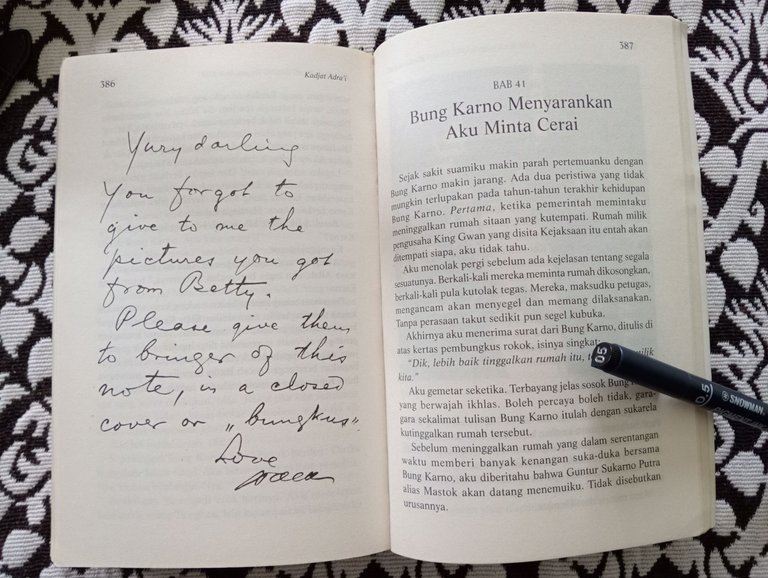 386
Kadjat Adra'i
Yury darling
You forgot to
give to me the
pictures you got
from Betty.
Please give them
to bringer of this
note, in a closed
cover or „bungkus".
Love
387
BAB 41
Bung Karno Menyarankan
Aku Minta Cerai
Sejak sakit suamiku makin parah pertemuanku dengan
Bung Karno makin jarang. Ada dua peristiwa yang tidak
mungkin terlupakan pada tahun-tahun terakhir kehidupan
Bung Karno. Pertama, ketika pemerintah memintaku
meninggalkan rumah sitaan yang kutempati. Rumah milik
pengusaha King Gwan yang disita Kejaksaan itu entah akan
ditempati siapa, aku tidak tahu.
Aku menolak pergi sebelum ada kejelasan tentang segala
sesuatunya. Berkali-kali mereka meminta rumah dikosongkan,
berkali-kali pula kutolak tegas. Mereka, maksudku petugas,
mengancam akan menyegel dan memang dilaksanakan.
Tanpa perasaan takut sedikit pun segel kubuka.
Akhirnya aku menerima surat dari Bung Karno, ditulis di
atas kertas pembungkus rokok, isinya singkat:
"Dik, lebih baik tinggalkan rumah itu, milik
kita."
Aku gemetar seketika. Terbayang jelas sosok Bung
yang berwajah ikhlas. Boleh percaya boleh tidak, gara-
gara sekalimat tulisan Bung Karno itulah dengan sukarela
kutinggalkan rumah tersebut.
Sebelum meninggalkan rumah yang dalam serentangan
waktu memberi banyak kenangan suka-duka bersama
Bung Karno, aku diberitahu bahwa Guntur Sukarno Putra
alias Mastok akan datang menemuiku. Tidak disebutkan
urusannya.
05
0.5 SNOWMAN